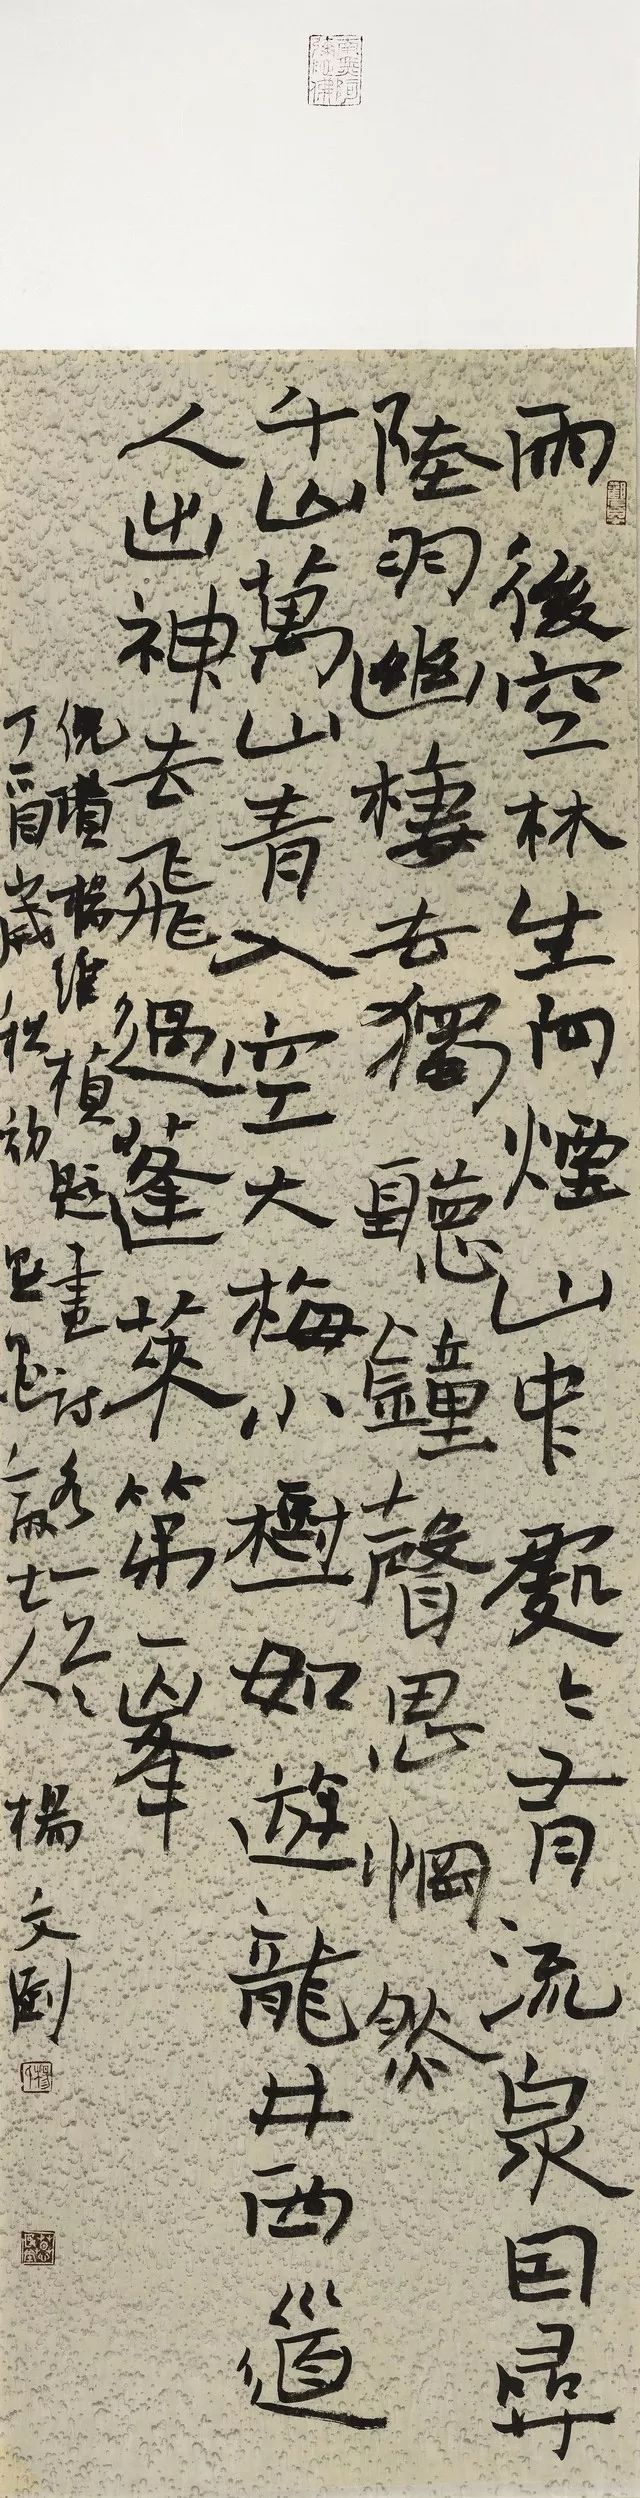 雨後空林生白煙山中處々有流泉因尋
陸羽幽棲去獨聽鐘聲思惘然
千山萬山青入空大梅小樹如遊龍井西道
人出神去飛過蓬萊第一峯
倪瓚楊維楨題畫詩各一首
丁酉歲秋初
楊文劍